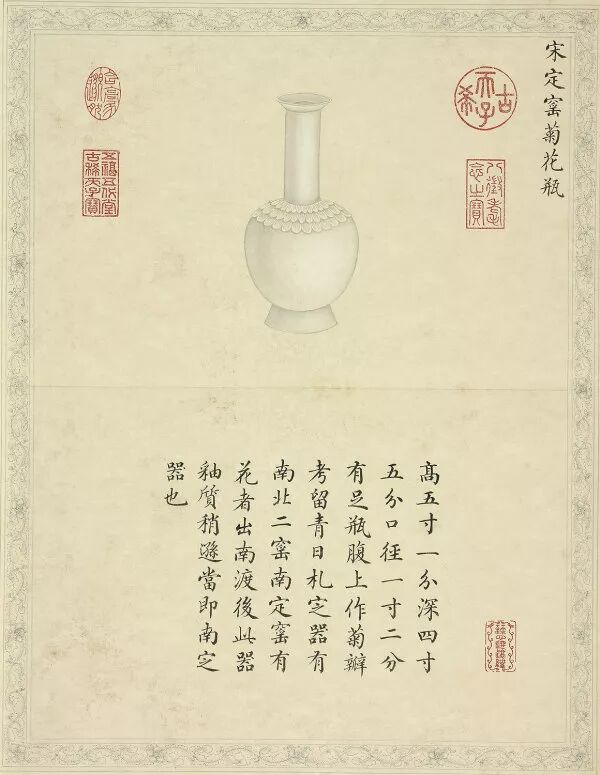 宋定窰菊花瓶
古希天子
八徵耄念之寶
五福五代堂
古稀天子寶
高五寸一分深四寸
五分口徑一寸二分
有足瓶腹上作菊瓣
考留青日札定器有
南北二窰南定窰有
花者出南渡後此器
釉質稍遜當即南定
器也